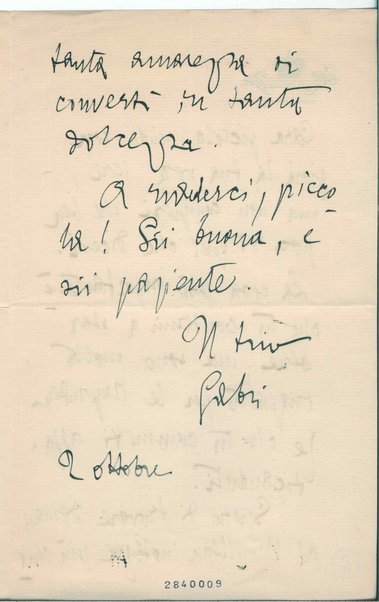 tanta amarezza si
convertì in tanta
dolcezza.
A rivederci, picco-
la! Sii buona, e
sii paziente.
Il tuo
Gabri
2 ottobre
2840009